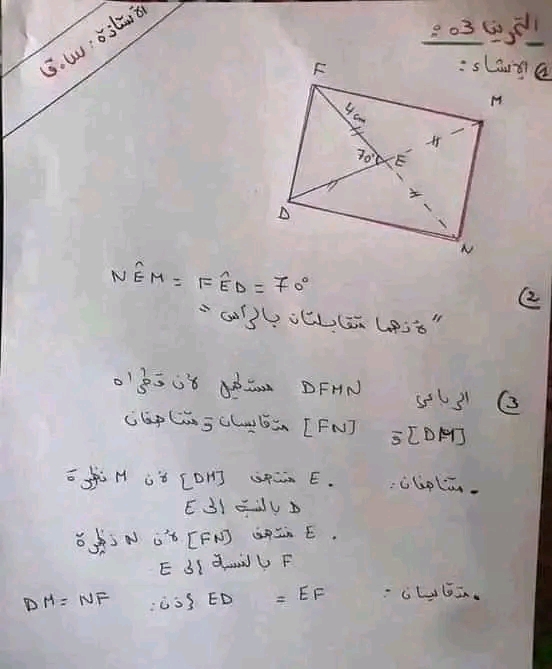 الأستاذة: س.ق
التمرين 03:
1) الإنشاء:
F
M
4cm
70°
E
D
N
2) NÊM = FÊD = 70°
"لأنهما متقابلتان بالرأس"
3) الرباعي DFMN مستطيل لأن قطراه
[DM] و [FN] متقايسان و متناصفان
. متناصفان: . E منتصف [DM] لأن M نظيرة
D بالنسبة إلى E
. E منتصف [FN] لأن N نظيرة
F بالنسبة إلى E
. متقايسان: EF = ED إذن: DM = NF